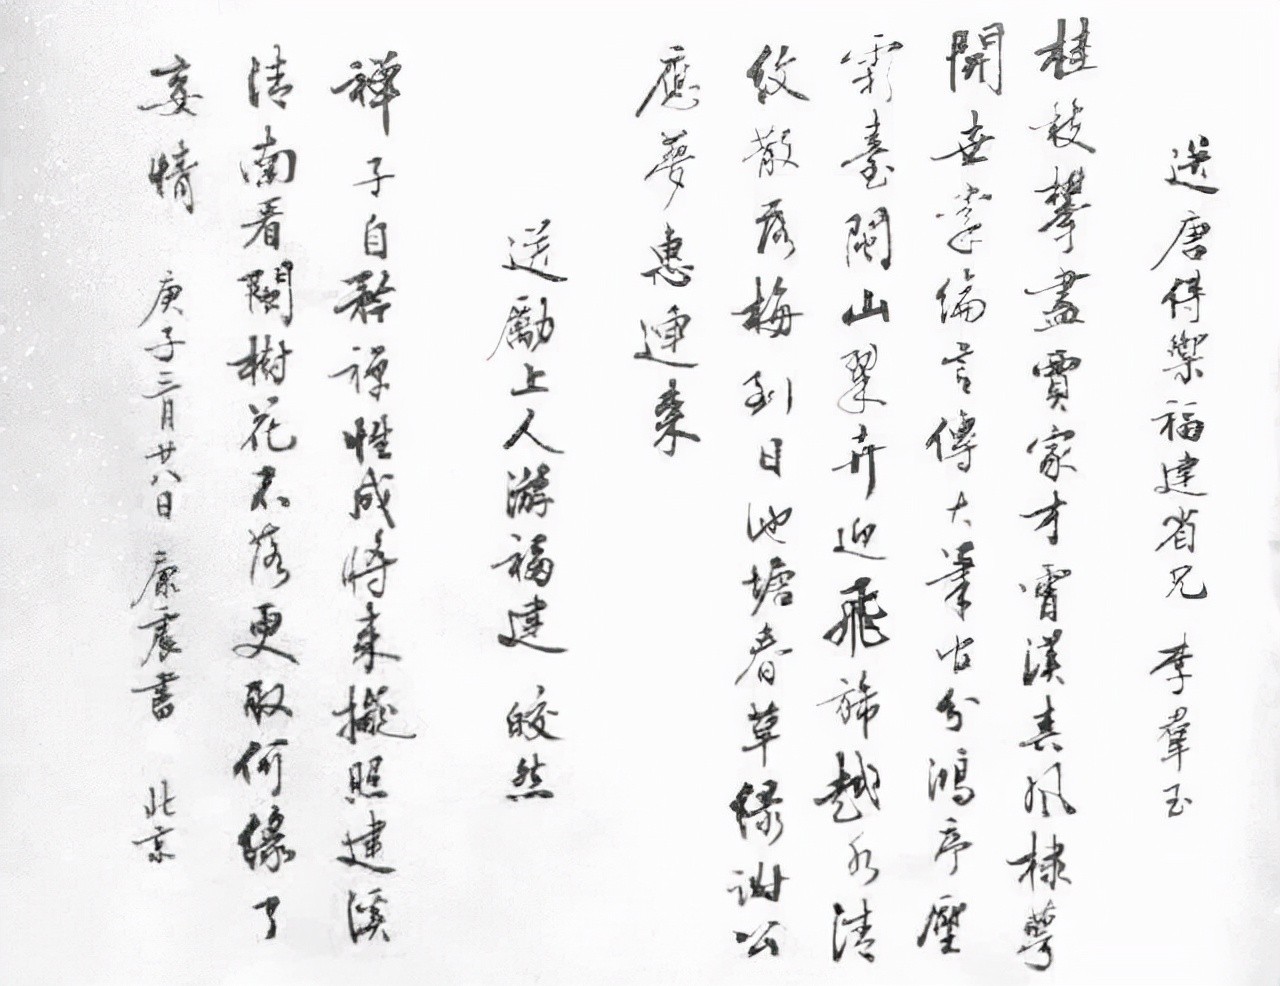 送唐侍禦福建省兄 李羣玉
桂枝攀盡賈家才霄漢春風棣萼
開世掌綸言傳大筆官分鴻序壓
霜臺閩山翠卉迎飛旆越水清
紋散落梅到日池塘春草緑謝公
應夢惠連來
送勵上人游福建 皎然
禅子自矜禅性成將来擬照建溪
清南看閩樹花不落更取何緣了
妄情 庚子三月廿八日 康震書 北京